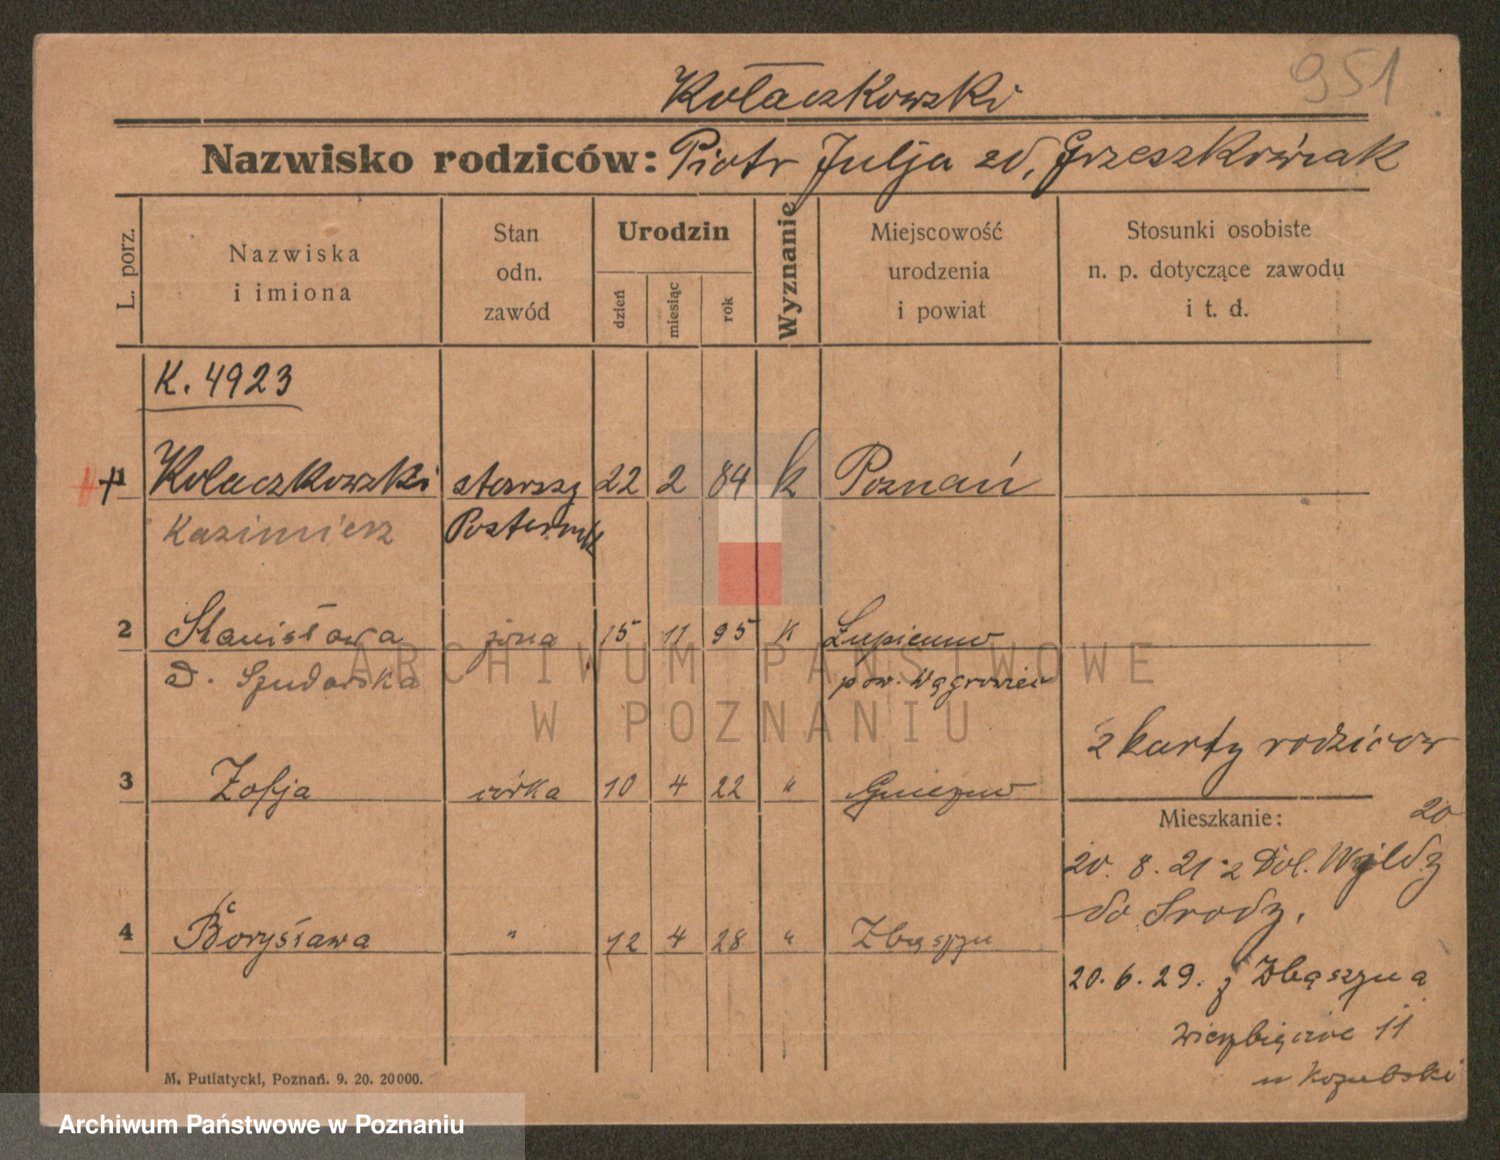 951
Kołaczkowski
Nazwisko rodziców: Piotr Julja zd. Grzeszkowiak
L. porz.
Nazwiska
i imiona
Stan
odn.
zawód
Urodzin
dzień
miesiąc
rok
Wyznanie
Miejscowość
urodzenia
i powiat
Stosunki osobiste
n. p. dotyczące zawodu
i t. d.
K. 4923
1 Kołaczkowski starszy 22 2 84 k Poznań
Kazimierz Posterunk
2 Stanisława żona 15 11 95 k
d. Szudarska pow. Wągrowiec
2 karty rodziców
3 Zofja córka 10 4 22 " Gniezno
Mieszkanie:
20
20. 8. 21 Dol. Wyldy
do Środy.
4 Borysława " 12 4 28 " Zbąszyn
20. 6. 29. z Zbąszyna
Wierzbięcice 11
u Kozubski
M. Putiatycki, Poznań. 9. 20. 20000.
ARCHIWUM PAŃSTWOWE
W POZNANIU
Archiwum Państwowe w Poznaniu